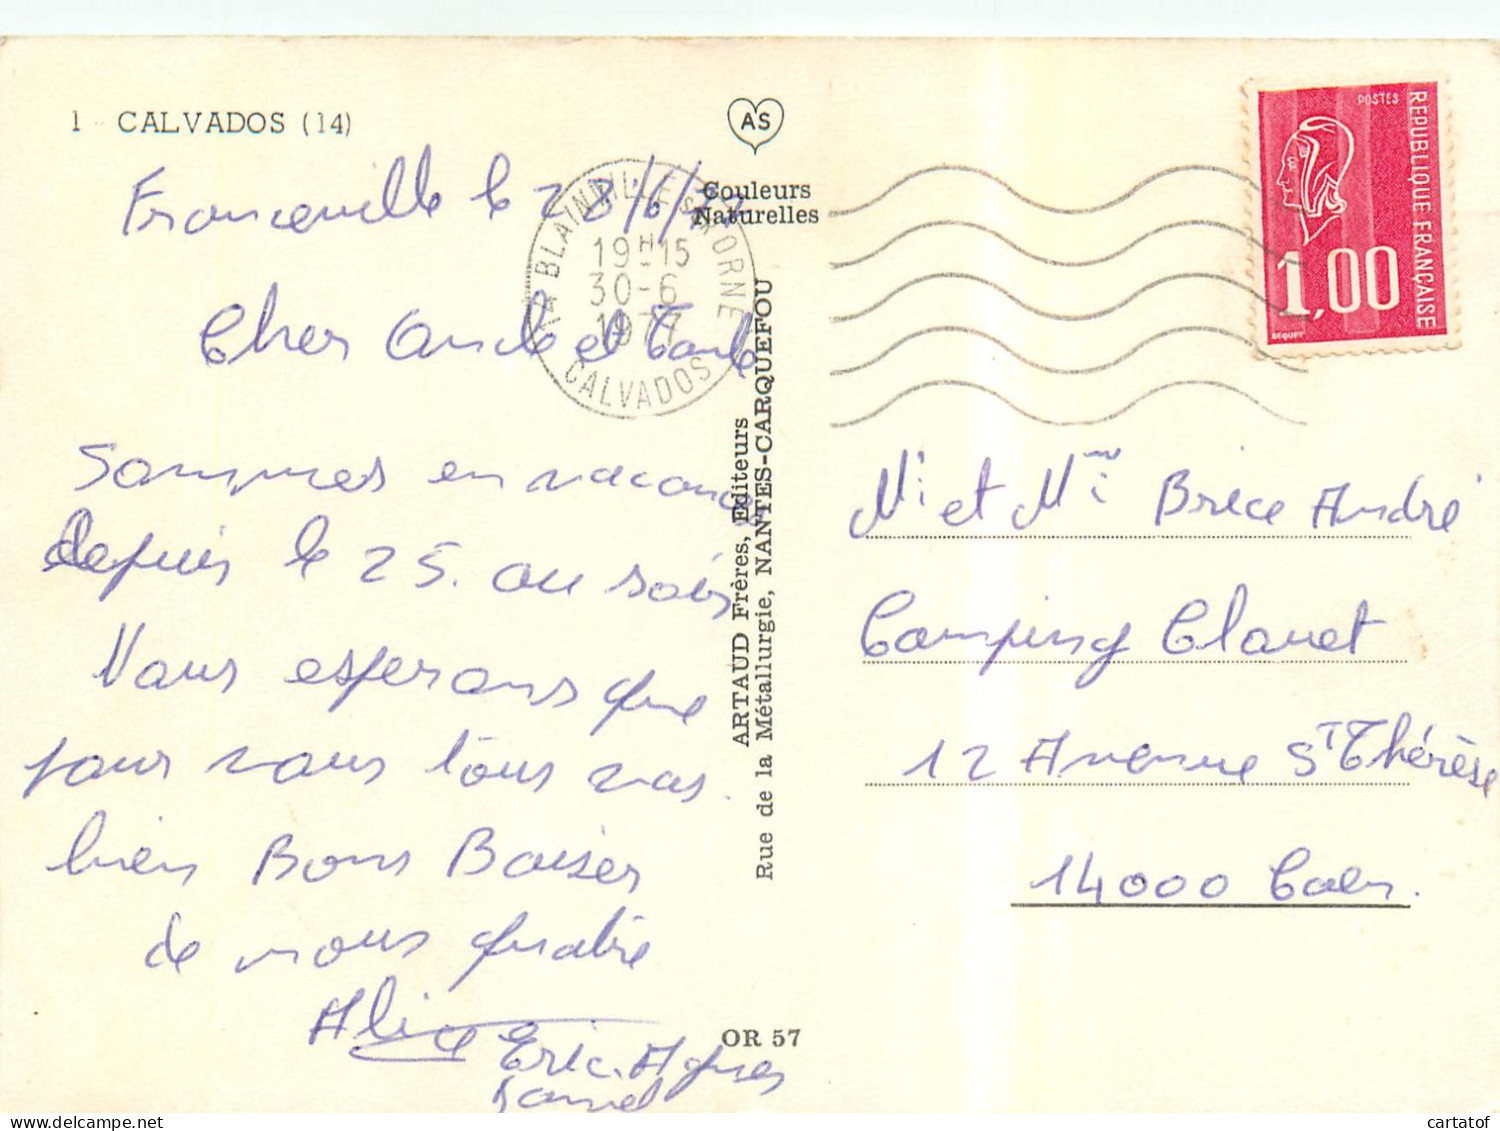 1 CALVADOS (14)
AS
Couleurs
Naturelles
Franceville le 28/6/77
Cher Oncle et Tante
Sommes en vacances
depuis le 25. au soir
Nous esperons que
pour vous tous vas
bien Bons Baiser
de nous quatre
Alice
Eric. Agnes
14 BLAINVILLE S/ ORNE
19H15
30-6
1977
CALVADOS
ARTAUD Frères, Editeurs
Rue de la Métallurgie, NANTES-CARQUEFOU
OR 57
POSTES
REPUBLIQUE FRANÇAISE
1,00
BEQUET
Mr et Mme Brice André
Camping Clauet
12 Avenue St Thérèse
14000 Caen.
www.delcampe.net
cartatof